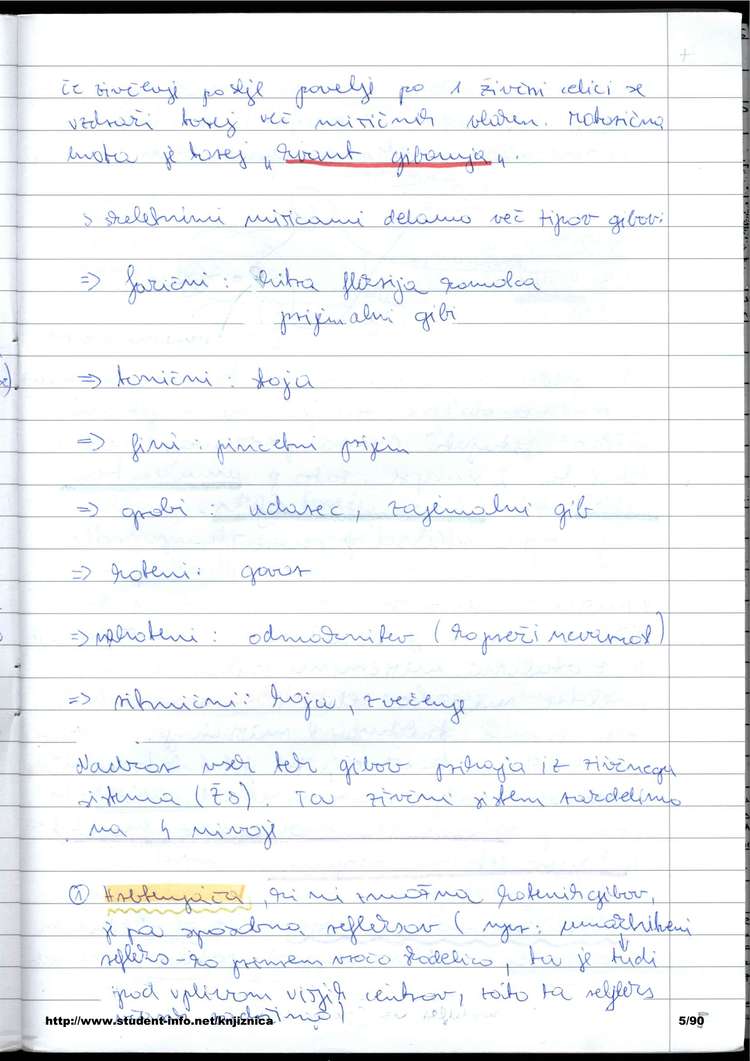 če živčevje pošlje povelje po 1 živčni celici se
vzdraži torej več mišičnih vlaken. Motorična
enota je torej „kvant gibanja„.
> skeletnimi mišicami delamo več tipov gibov:
=> fazični : hitra fleksija komolca
prijemalni gibi
=> tonični : stoja
=> fini : pincetni prijem
=> grobi : udarec, zajemalni gib
=> hoteni : govor
=> nehoteni : odmaknitev (ko preži nevarnost)
=> ritmični : hoja, žvečenje
Nadzor vseh teh gibov prihaja iz živčnega
sistema (ŽS). Ta živčni sistem razdelimo
na 4 nivoje
① Hrbtenjača, ki ni zmožna hotenih gibov,
je pa sposobna refleksov (npr: umaknitveni
refleks - ko primem vročo skodelico, ta je tudi
pod vplivom višjih centrov, zato ta refleks
zadržimo)
http://www.student-info.net/knjiznica 5/90